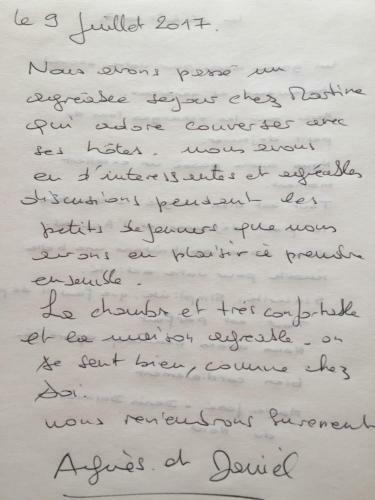 le 9 Juillet 2017.
Nous avons passé un
agréable séjour chez Martine
qui adore converser avec
ses hôtes. nous avons
eu d'intéressentes et agréables
discussions pendant les
petits dejeuners que nous
avons eu plaisir à prendre
ensemble.
La chambre et très confortable
et la maison agréable. on
se sent bien, comme chez
soi.
nous reviendrons surement
Agnès et Daniel